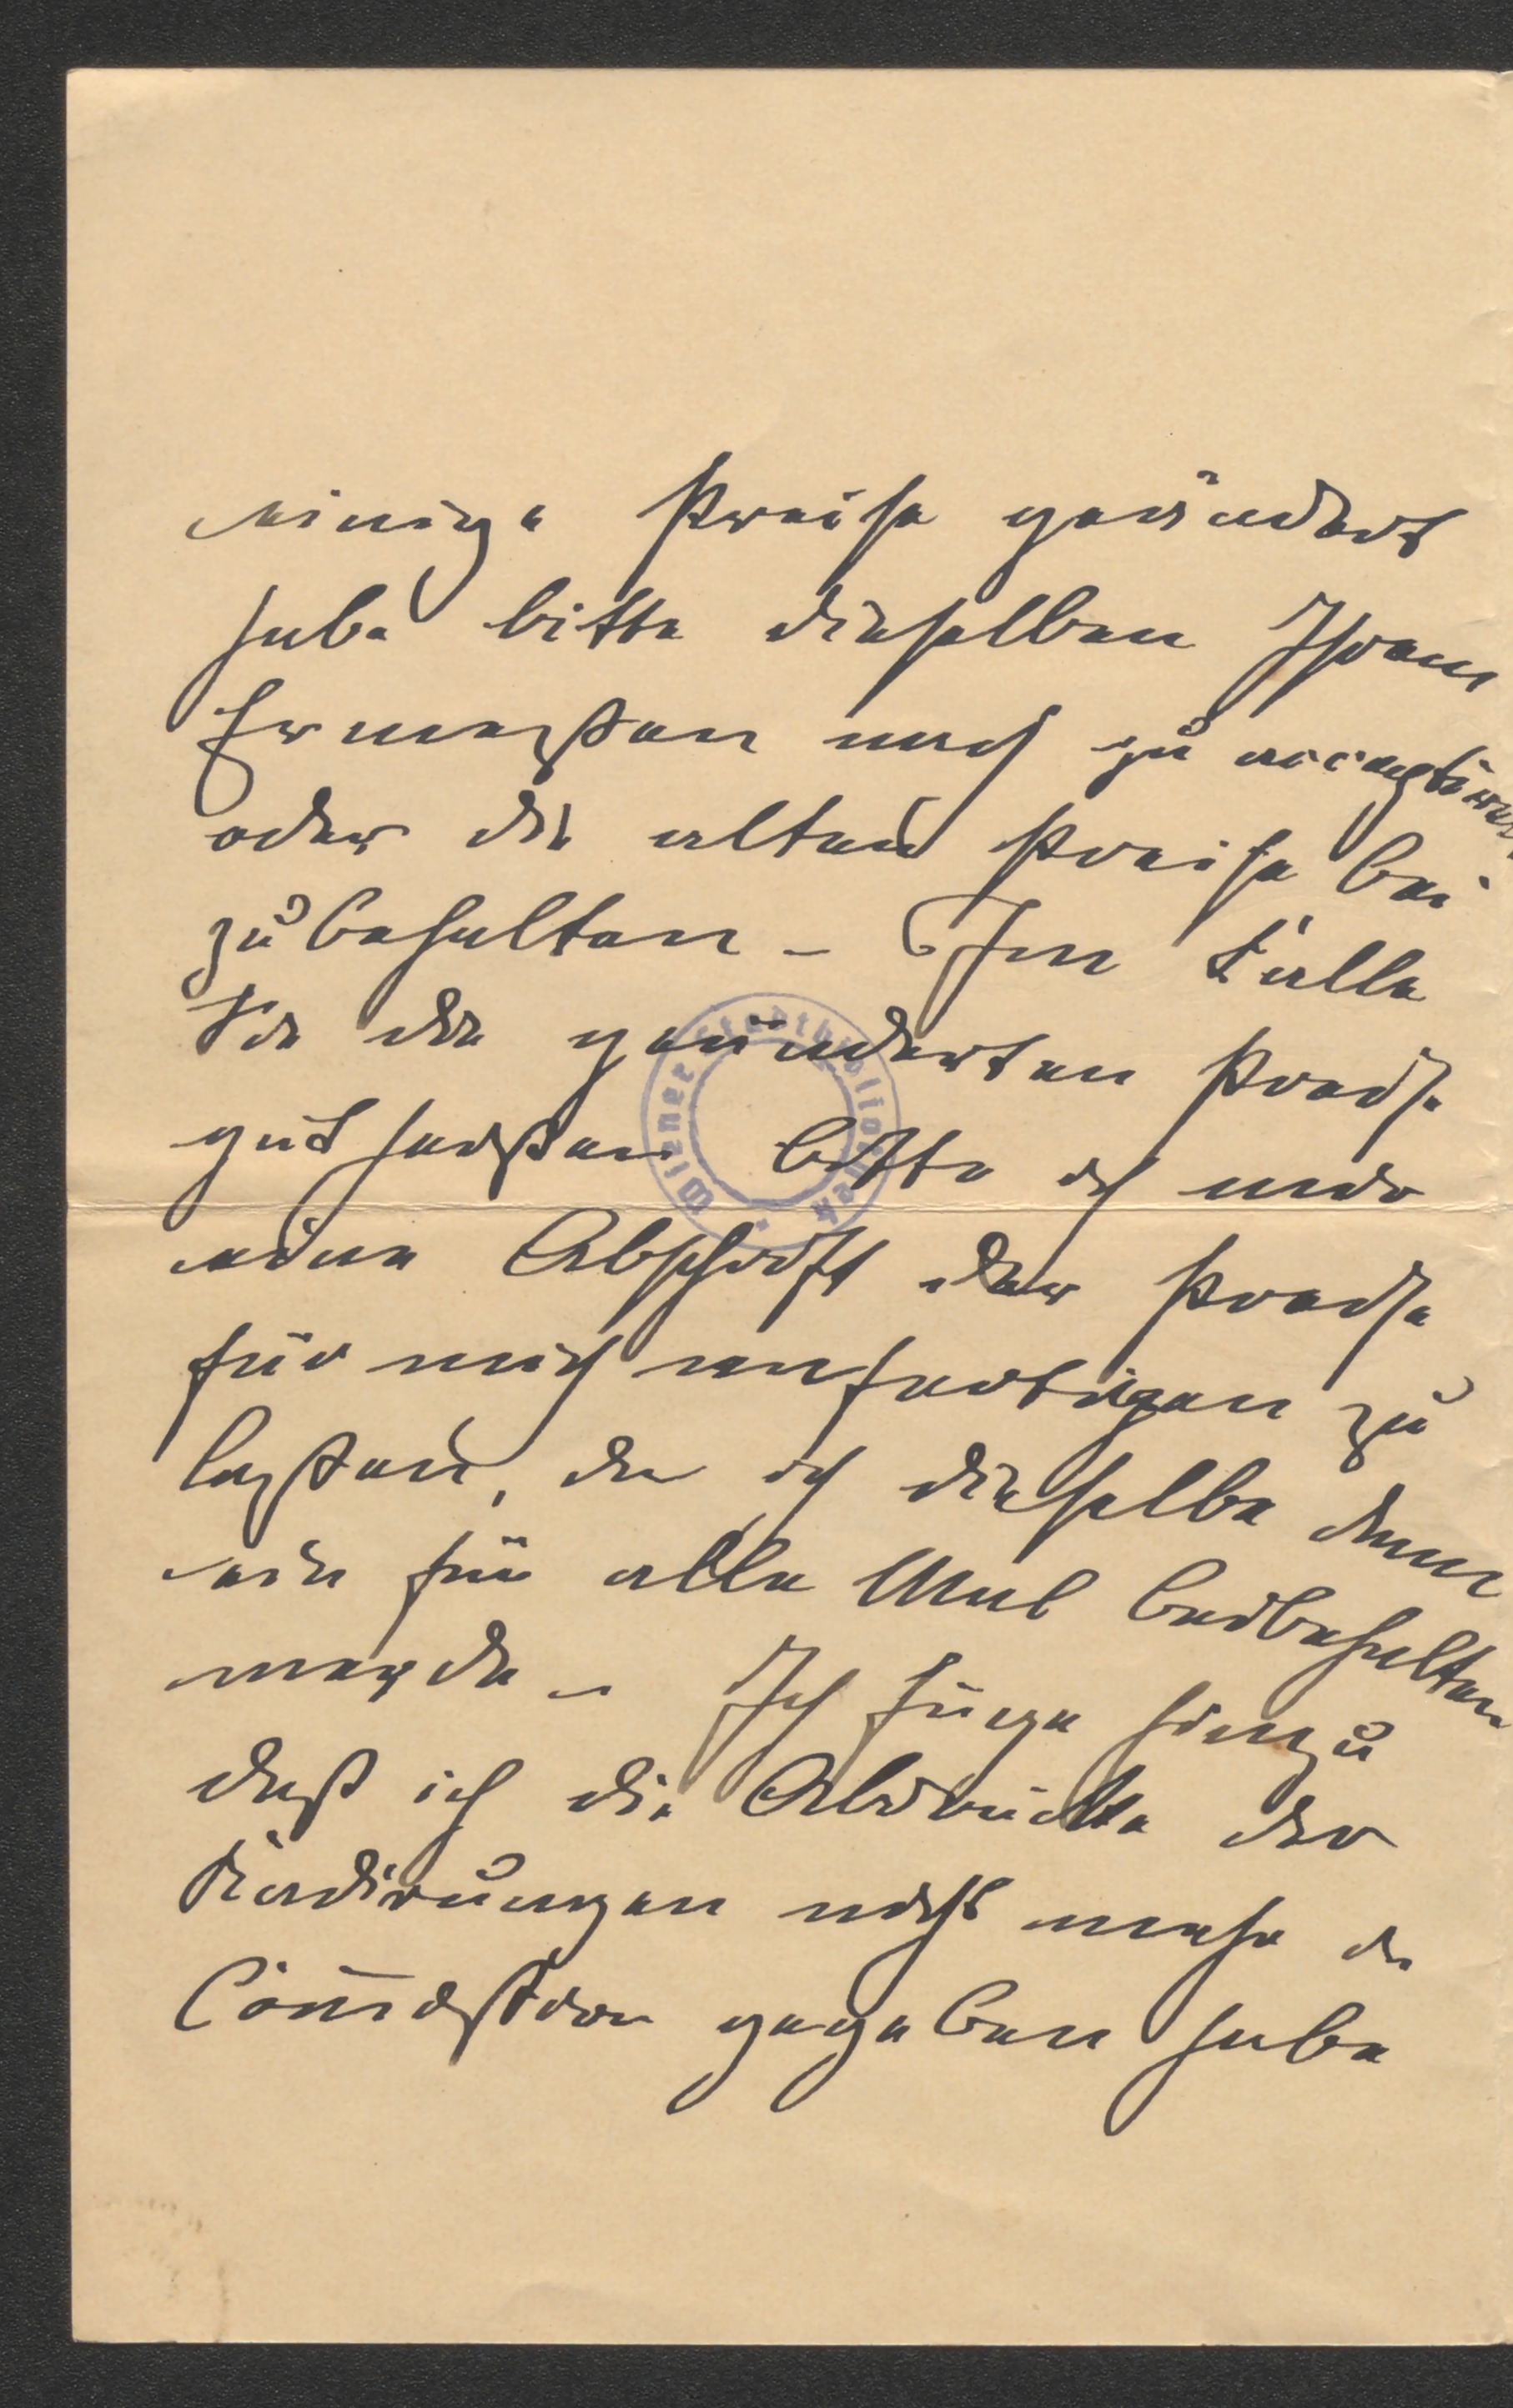 einige Preise geändert
habe bitte dieselben Ihrem
Ermeßen nach zu acceptiren
oder die alten Preise bei
zubehalten – Im Falle
Sie die geänderten Preise
gut heißen bitte ich mir
eine Abschrift der Preise
für mich anfertigen zu
laßen, da ich dieselbe dann
ein für alle Mal beibehalten
werde – Ich füge hinzu
daß ich die Abdrücke der
Radirungen nicht mehr in
Com̅ission gegeben habe
Wiener Stadtbibliothek